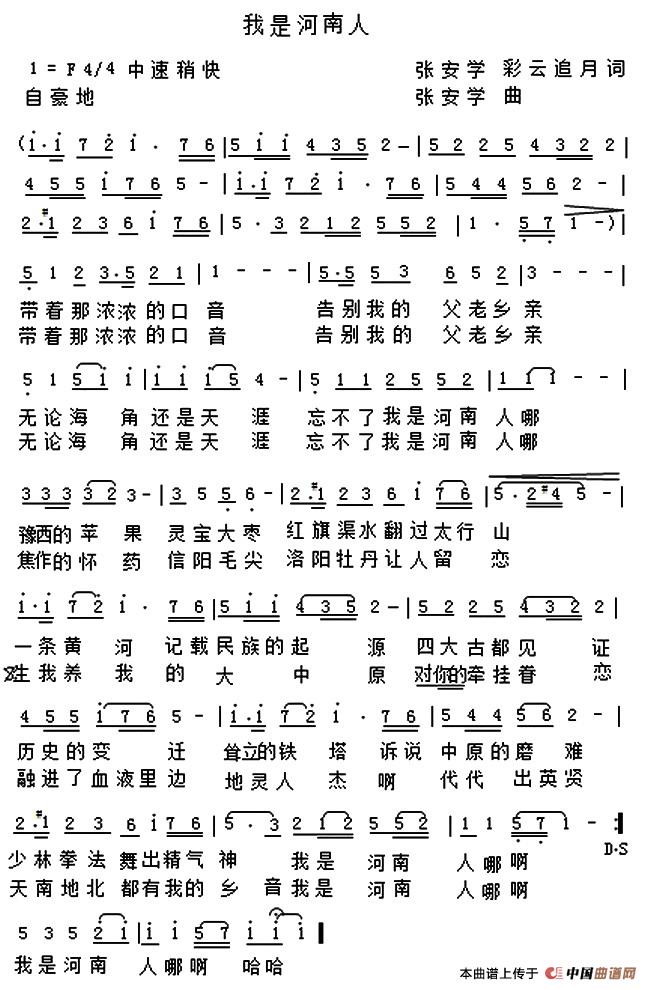 我是河南人
1=F 4/4 中速稍快 张安学 彩云追月词
自豪地 张安学 曲
(i·i 7 2 i· 76|5 i i 4 3 5 2 -|5 2 2 5 4 3 2 2|
4 5 5 i 7 6 5 -|i·i 7 2 i· 76|5 4 4 5 6 2 -|
2·#1 2 3 6 i 7 6|5· 3 2 1 2 5 5 2|1· 5 7 1 -)|
5 1 2 3·5 2 1|1 - - -|5·5 5 3 6 5 2|3 - - -|
带着那浓浓的口音 告别我的 父老乡亲
带着那浓浓的口音 告别我的 父老乡亲
5 1 5 i i|i i i 5 4 -|5 1 1 2 5 5 2|1 1 1 - -|
无论海 角 还是天 涯 忘不了我是河南 人哪
无论海 角 还是天 涯 忘不了我是河南 人哪
3 3 3 3 2 3 -|3 5 5 6 -|2·#1 2 3 6 i 7 6|5·2 #4 5 -|
豫西的 苹 果 灵宝大枣 红旗渠水翻过太行山
焦作的 怀 药 信阳毛尖 洛阳牡丹让人留 恋
i·i 7 2 i· 7 6|5 i i 4 3 5 2 -|5 2 2 5 4 3 2 2|
一条黄 河 记载民族的起 源 四大古都见 证
生我养 我 的 大 中 原 对你的牵挂眷 恋
4 5 5 i 7 6 5 -|i·i 7 2 i· 7 6|5 4 4 5 6 2 -|
历史的变 迁 耸立的铁 塔 诉说 中原的磨 难
融进了血液里边 地灵人 杰 啊 代代 出英贤
2·#1 2 3 6 i 7 6|5· 3 2 1 2 5 5 2|1 1 5 7 1 - :|
D·S
少林拳法 舞出精气 神 我 是 河南 人哪啊
天南地北 都有我的 乡 音我是 河南 人哪啊
5 3 5 2 i|i i 5 7 i i i|
我是河 南 人哪啊 哈哈
本曲谱上传于 中国曲谱网